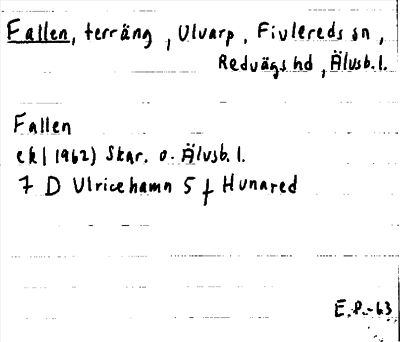 Fallen, terräng, Ulvarp, Fivlereds sn,
Redvägs hd, Älvsb. l.
Fallen
ek (1962) Skar. o. Älvsb. l.
7 D Ulricehamn 5 f Hunared
E.P.-63